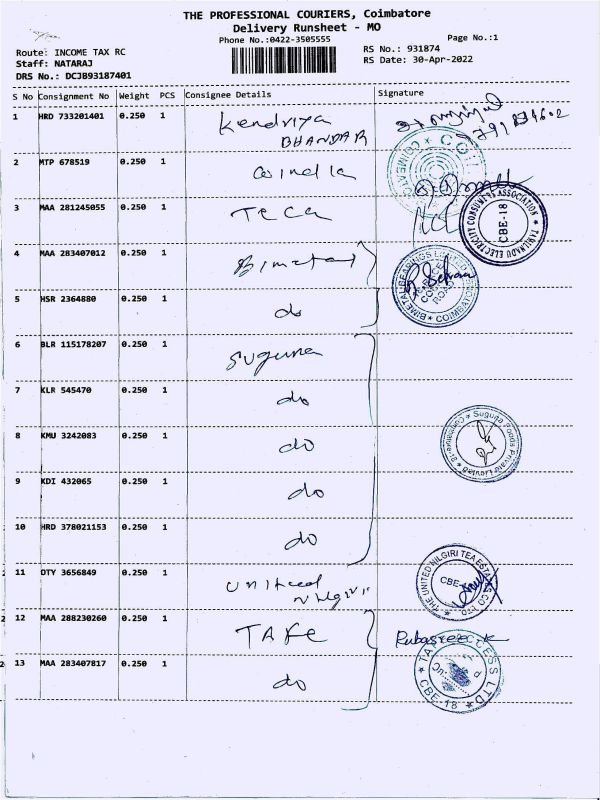 THE PROFESSIONAL COURIERS, Coimbatore
Delivery Runsheet - MO
Phone No.:0422-3505555
Page No.:1
Route: INCOME TAX RC
RS No.: 931874
Staff: NATARAJ
RS Date: 30-Apr-2022
DRS No.: DCJB93187401
S No Consignment No Weight PCS Consignee Details Signature
1 HRD 733201401 0.250 1 Kendriya
BHANDAR
2 MTP 678519 0.250 1 Coindia
3 MAA 281245055 0.250 1 Teca
TAMILNADU ELECTRICITY CONSUMERS ASSOCIATION
CBE-18
4 MAA 283407012 0.250 1 Bimetal
5 HSR 2364880 0.250 1 do
6 BLR 115178207 0.250 1 Suguna
7 KLR 545470 0.250 1 do
8 KMU 3242083 0.250 1 do
Suguna Foods Private Limited Coimbatore
9 KDI 432065 0.250 1 do
10 HRD 378021153 0.250 1 do
11 OTY 3656849 0.250 1 United
Nilgiri
THE UNITED NILGIRI TEA ESTATES CO
CBE
12 MAA 288230260 0.250 1 TAFE
13 MAA 283407817 0.250 1 do
CBE-18